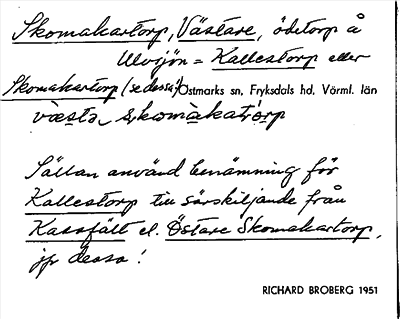 Skomakartorp, Västare, ödetorp å
Ulvsjön = Kallestorp eller
Skomakartorp (se dessa!) Östmarks sn, Fryksdals hd, Värml. län
væsta skomàkatórp
Sällan använd benämning för
Kallestorp till särskiljande från
Kassfält el. Östare Skomakartorp,
jfr dessa!
RICHARD BROBERG 1951